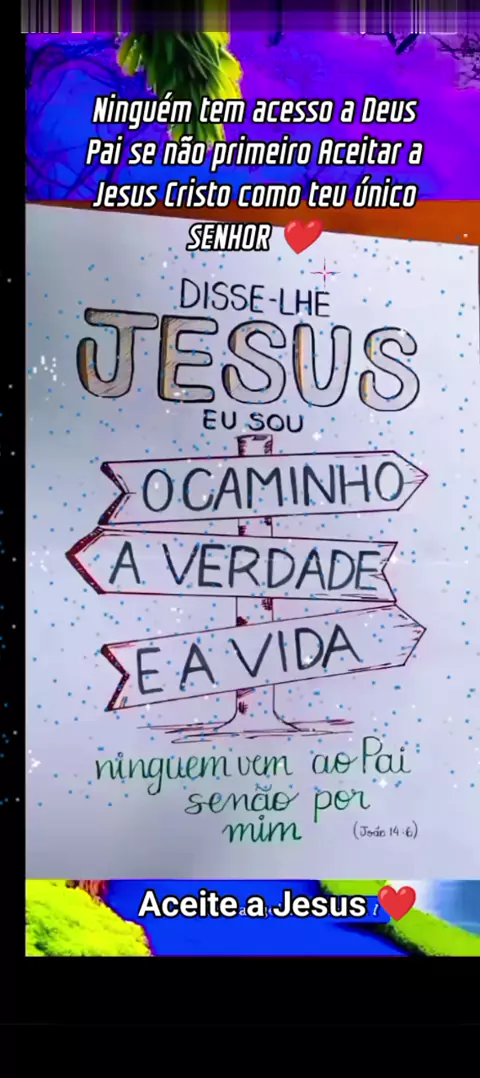 Ninguém tem acesso a Deus
Pai se não primeiro Aceitar a
Jesus Cristo como teu único
SENHOR ❤️
DISSE-LHE
JESUS
EU SOU
O CAMINHO
A VERDADE
E A VIDA
ninguem vem ao Pai
senão por
mim
(João 14:6)
Aceite a Jesus ❤️